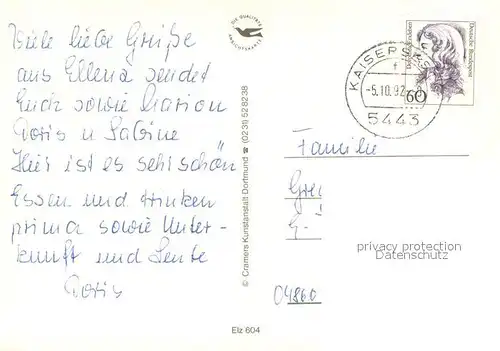 Viele liebe Grüße
aus Ellenz sendet
Euch sowie Marion
Doris u Sabine
Hier ist es sehr schön
Essen und trinken
prima sowie Unter-
kunft und Leute
Doris
DIE QUALITÄTS
ANSICHTSKARTE
© Cramers Kunstanstalt Dortmund ☎ (0231) 528238
Elz 604
Deutsche Bundespost
60
-5.10.92.-8
5443
Familie
privacy protection
DELCAMPE.NET
04860